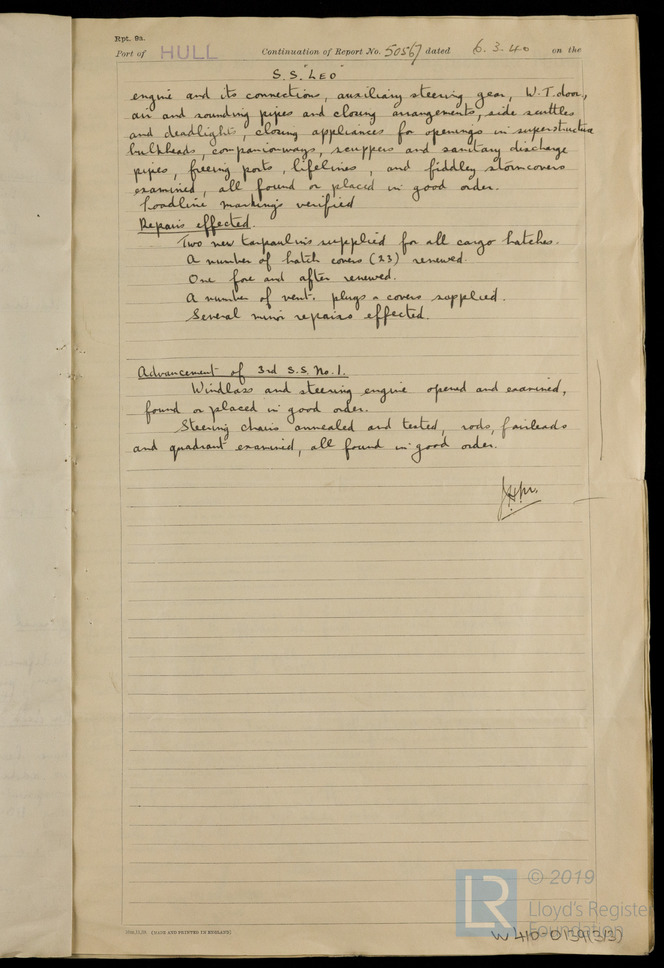 Rpt. 9a.
Port of HULL Continuation of Report No. 50567 dated 6.3.40 on the
S.S. "LEO"
engine and its connections, auxiliary steering gear, W.T. door,
air and sounding pipes and closing arrangements, side scuttles
and deadlights, closing appliances for openings in superstructure
bulkheads, companionways, scuppers and sanitary discharge
pipes, freeing ports, lifelines, and fiddley stormcovers
examined, all found or placed in good order.
Loadline markings verified
Repairs effected.
Two new tarpaulins supplied for all cargo hatches.
A number of hatch covers (23) renewed.
One fore and after renewed.
A number of vent. plugs & covers supplied.
Several minor repairs effected.
Advancement of 3rd S.S. No. 1.
Windlass and steering engine opened and examined,
found or placed in good order.
Steering chains annealed and tested, rods, fairleads
and quadrant examined, all found in good order.
(MADE AND PRINTED IN ENGLAND)
LR © 2019
Lloyd's Register
Foundation
W410-0139(3/3)